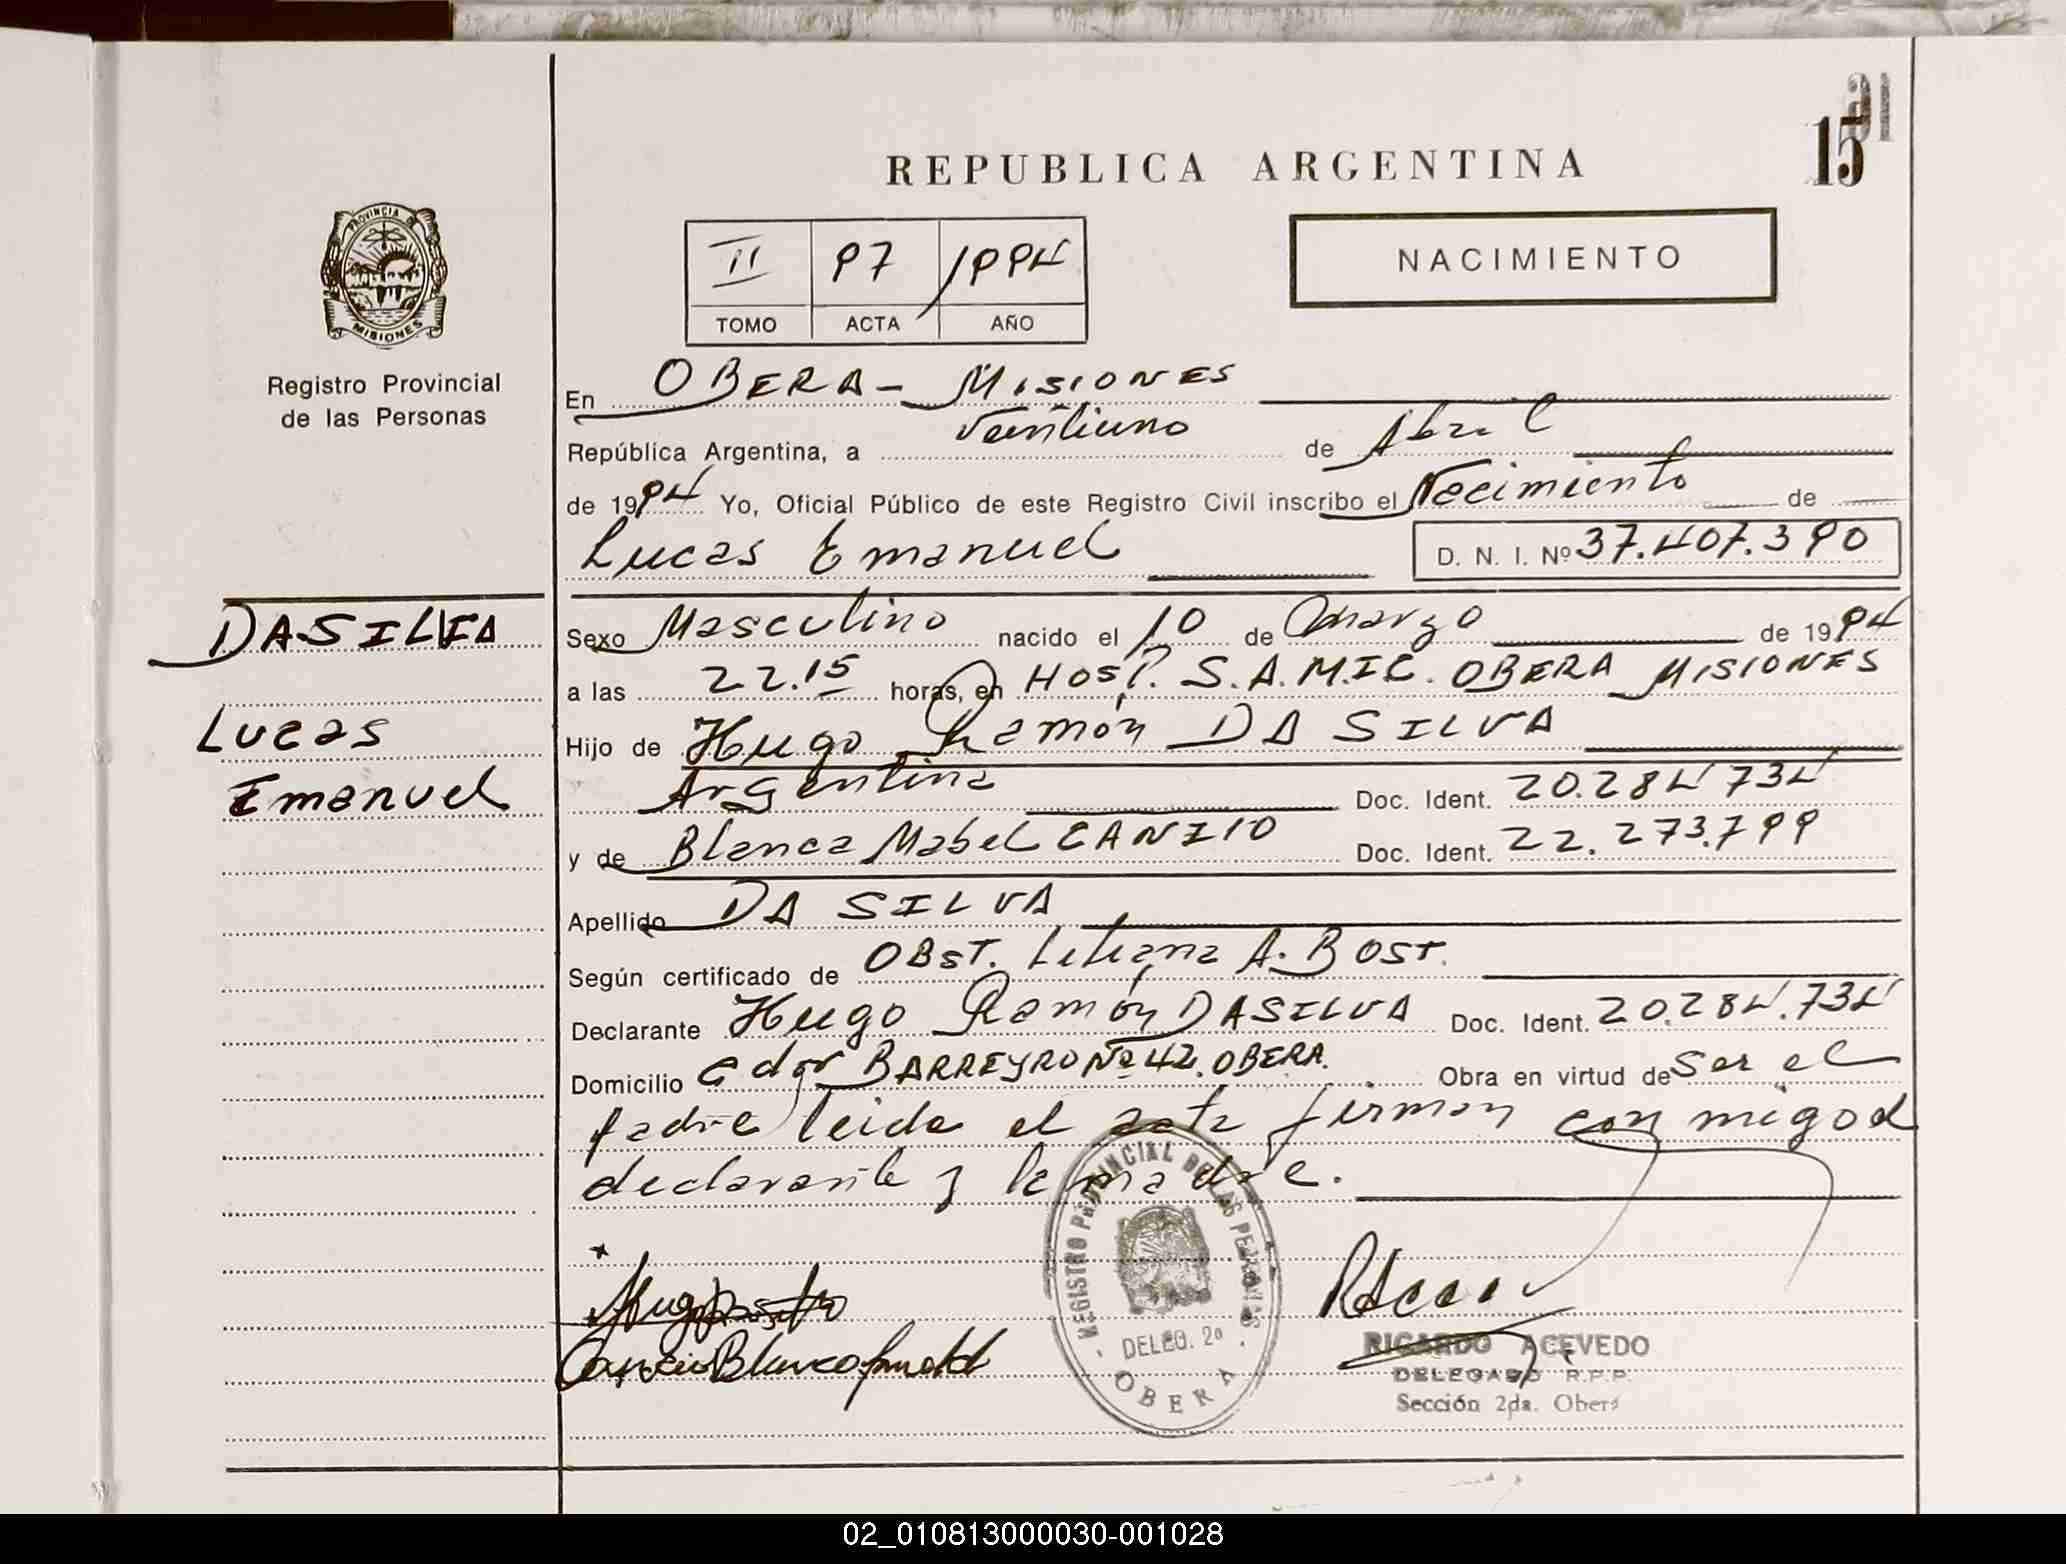 REPUBLICA ARGENTINA
15
PROVINCIA DE MISIONES
Registro Provincial
de las Personas
II 97 1994
TOMO ACTA AÑO
NACIMIENTO
En OBERA - MISIONES
República Argentina, a Veintiuno de Abril
de 1994 Yo, Oficial Público de este Registro Civil inscribo el Nacimiento de
Lucas Emanuel D. N. I. Nº 37.407.390
DA SILVA
Lucas
Emanuel
Sexo Masculino nacido el 10 de marzo de 1994
a las 22.15 horas, en HOSP. S.A.M.I.C. OBERA MISIONES
Hijo de Hugo Ramón DA SILVA
Argentina Doc. Ident. 20.284734
y de Blanca Mabel CANZIO Doc. Ident. 22.273.799
Apellido DA SILVA
Según certificado de OBST. Liliana A. BOST.
Declarante Hugo Ramón DA SILVA Doc. Ident. 20.284.734
Domicilio BARREYRO Nº 42. OBERA. Obra en virtud de ser el
padre leida el acta firman conmigo el
declarante y la madre.
REGISTRO PROVINCIAL DE LAS PERSONAS
DELEG. 2a
OBERA
RICARDO ACEVEDO
DELEGADO R.P.P.
Sección 2da. Oberá
02_010813000030-001028